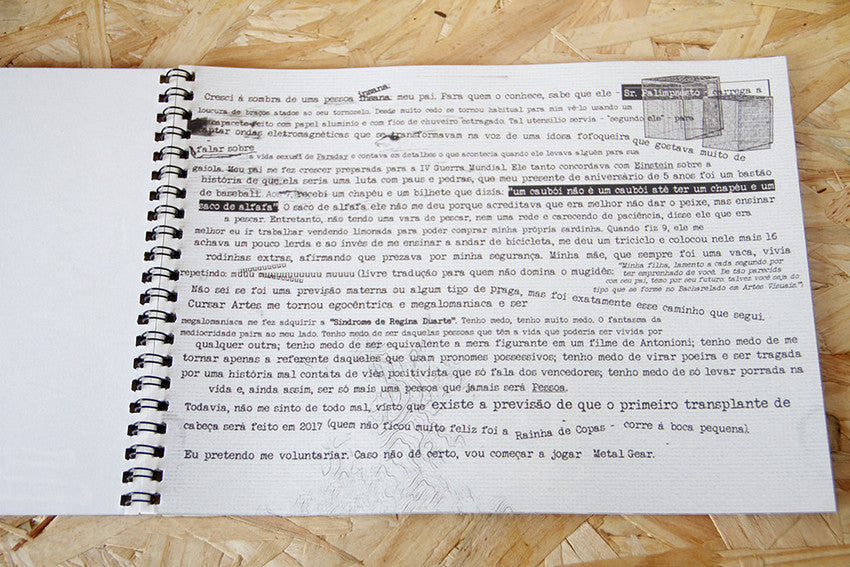 Cresci à sombra de uma pessoa insana insana: meu pai. Para quem o conhece, sabe que ele - Sr. Palimpsesto - carrega a
loucura de braços atados ao seu tornozelo. Desde muito cedo se tornou habitual para mim vê-lo usando um
capacete feito com papel alumínio e com fios de chuveiro estragado. Tal utensílio servia - "segundo ele" - para
captar ondas eletromagnéticas que se transformavam na voz de uma idosa fofoqueira que gostava muito de
falar sobre
a vida sexual de Faraday e contava em detalhes o que acontecia quando ele levava alguém para sua
gaiola. Meu pai me fez crescer preparada para a IV Guerra Mundial. Ele tanto concordava com Einstein sobre a
história de que ela seria uma luta com paus e pedras, que meu presente de aniversário de 5 anos foi um bastão
de baseball. Aos 7, recebi um chapéu e um bilhete que dizia: "um caubói não é um caubói até ter um chapéu e um
saco de alfafa". O saco de alfafa ele não me deu porque acreditava que era melhor não dar o peixe, mas ensinar
a pescar. Entretanto, não tendo uma vara de pescar, nem uma rede e carecendo de paciência, disse ele que era
melhor eu ir trabalhar vendendo limonada para poder comprar minha própria sardinha. Quando fiz 9, ele me
achava um pouco lerda e ao invés de me ensinar a andar de bicicleta, me deu um triciclo e colocou nele mais 16
rodinhas extras, afirmando que prezava por minha segurança. Minha mãe, que sempre foi uma vaca, vivia
repetindo: muuu muuuuuuuuuu muuuu (livre tradução para quem não domina o mugidês: "Minha filha, lamento a cada segundo por
ter emprenhado de você. De tão parecida
com seu pai, temo por seu futuro: talvez você seja do
tipo que se forme no Bacharelado em Artes Visuais.")
Não sei se foi uma previsão materna ou algum tipo de Praga, mas foi exatamente esse caminho que segui.
Cursar Artes me tornou egocêntrica e megalomaníaca e ser
megalomaníaca me fez adquirir a "Síndrome de Regina Duarte". Tenho medo, tenho muito medo. O fantasma da
mediocridade paira ao meu lado. Tenho medo de ser daquelas pessoas que têm a vida que poderia ser vivida por
qualquer outra; tenho medo de ser equivalente a mera figurante em um filme de Antonioni; tenho medo de me
tornar apenas a referente daqueles que usam pronomes possessivos; tenho medo de virar poeira e ser tragada
por uma história mal contada de viés positivista que só fala dos vencedores; tenho medo de só levar porrada na
vida e, ainda assim, ser só mais uma pessoa que jamais será Pessoa.
Todavia, não me sinto de todo mal, visto que existe a previsão de que o primeiro transplante de
cabeça será feito em 2017 (quem não ficou muito feliz foi a Rainha de Copas - corre à boca pequena).
Eu pretendo me voluntariar. Caso não dê certo, vou começar a jogar Metal Gear.